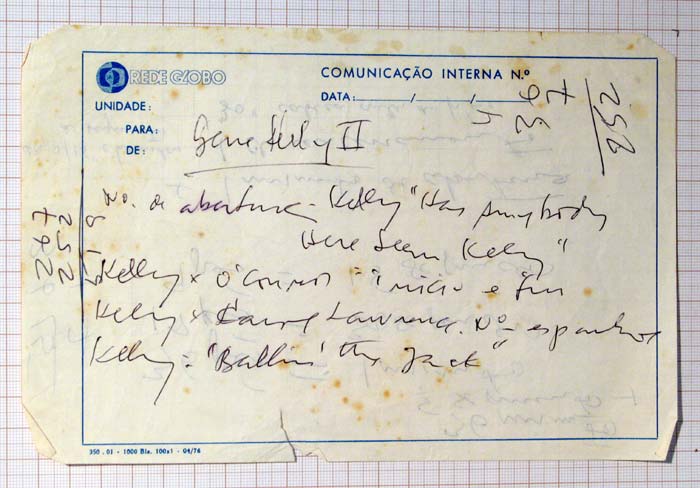 REDE GLOBO
COMUNICAÇÃO INTERNA N.º
DATA: / /
UNIDADE:
PARA:
DE:
Gene Kelly II
No. de abertura - Kelly "Has Anybody
Here Seen Kelly"
Kelly x O'Connor - início e fim
Kelly x Carol Lawrence. Nº espanhol
Kelly - "Ballin' the Jack"
36
7
4
252
252
350.01 - 1000 Bls. 100x1 - 04/76